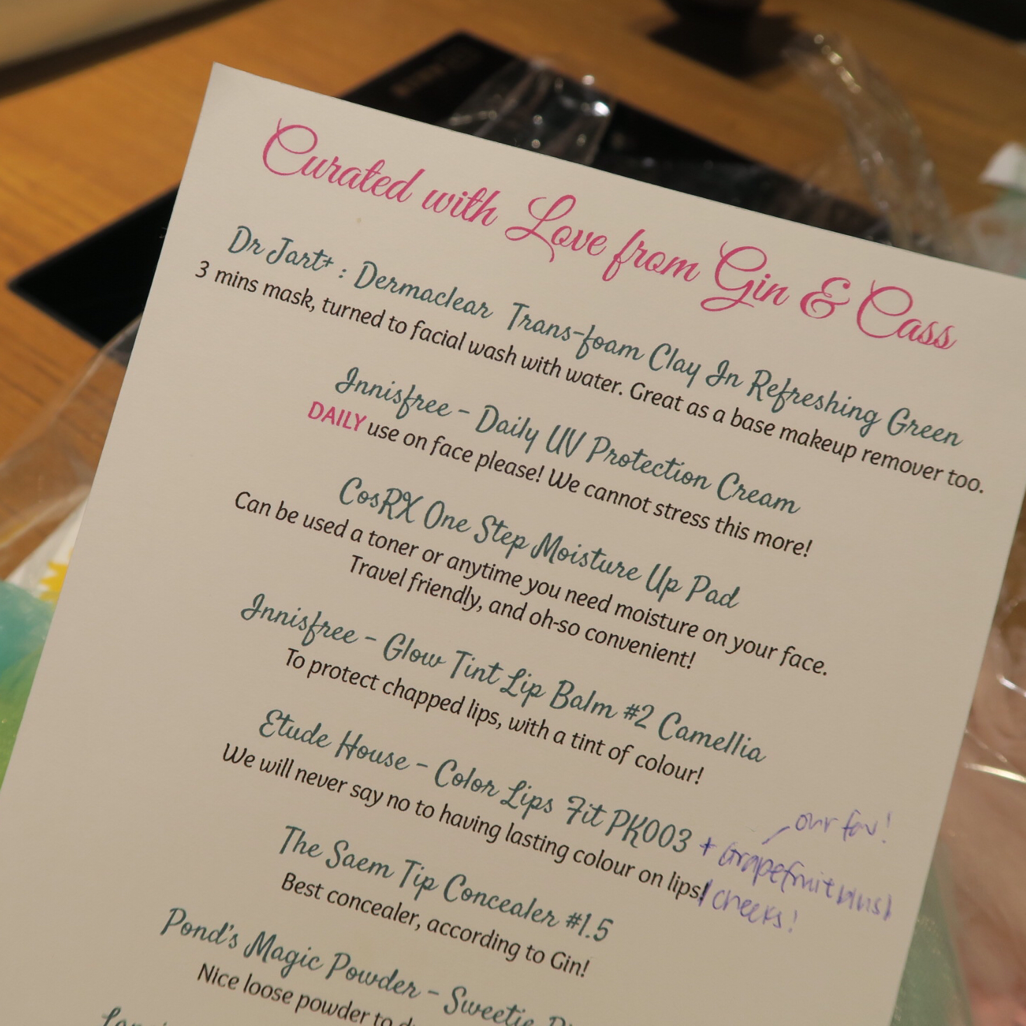 Curated with Love from Gin & Cass
Dr Jart+ : Dermaclear Trans-foam Clay In Refreshing Green
3 mins mask, turned to facial wash with water. Great as a base makeup remover too.
Innisfree - Daily UV Protection Cream
DAILY use on face please! We cannot stress this more!
CosRX One Step Moisture Up Pad
Can be used a toner or anytime you need moisture on your face.
Travel friendly, and oh-so convenient!
Innisfree - Glow Tint Lip Balm #2 Camellia
To protect chapped lips, with a tint of colour!
our fav!
Etude House - Color Lips Fit PK003 + Grapefruit blush
We will never say no to having lasting colour on lips/cheeks!
The Saem Tip Concealer #1.5
Best concealer, according to Gin!
Pond's Magic Powder - Sweetie
Nice loose powder to